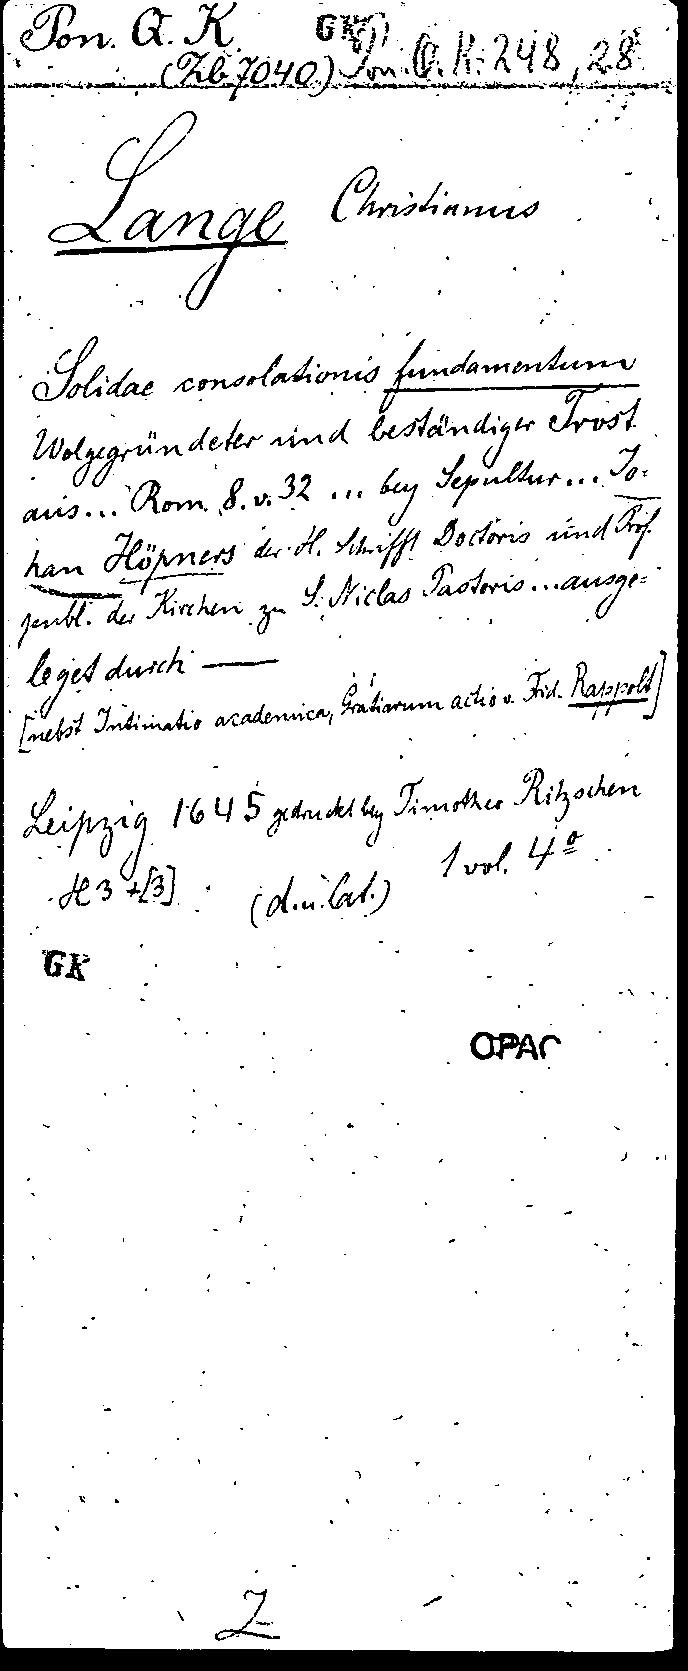 Pon. Q. K. GK
(Zb 7040) Pon. Q. K. 248, 28
Lange Christianus
Solidae consolationis fundamentum
Wolgegründeter und beständiger Trost
aus... Rom. 8. v. 32 ... bey Sepultur... Jo=
han Höpners der H. Schrifft Doctoris und Prof.
publ. der Kirchen zu S. Niclas Pastoris... ausge=
leget durch —
[nebst Intimatio academica, Gratiarum actio v. Frid. Rappolt]
Leipzig 1645 gedruckt bey Timotheo Ritzschen
H 3 + [3] (d. u. lat.) 1 vol. 4º
GK
OPAC
Z